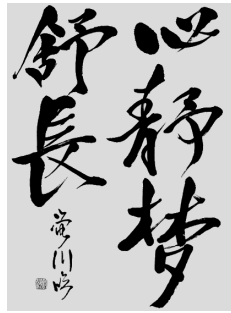 心静梦
舒長